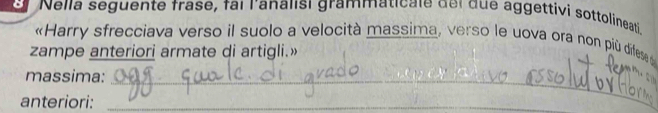 8 Nella seguente frase, fai l'analisi grammaticale dei due aggettivi sottolineati.
«Harry sfrecciava verso il suolo a velocità massima, verso le uova ora non più difese d
zampe anteriori armate di artigli.»
massima: agg. quale. di grado superlativo assoluto
anteriori: